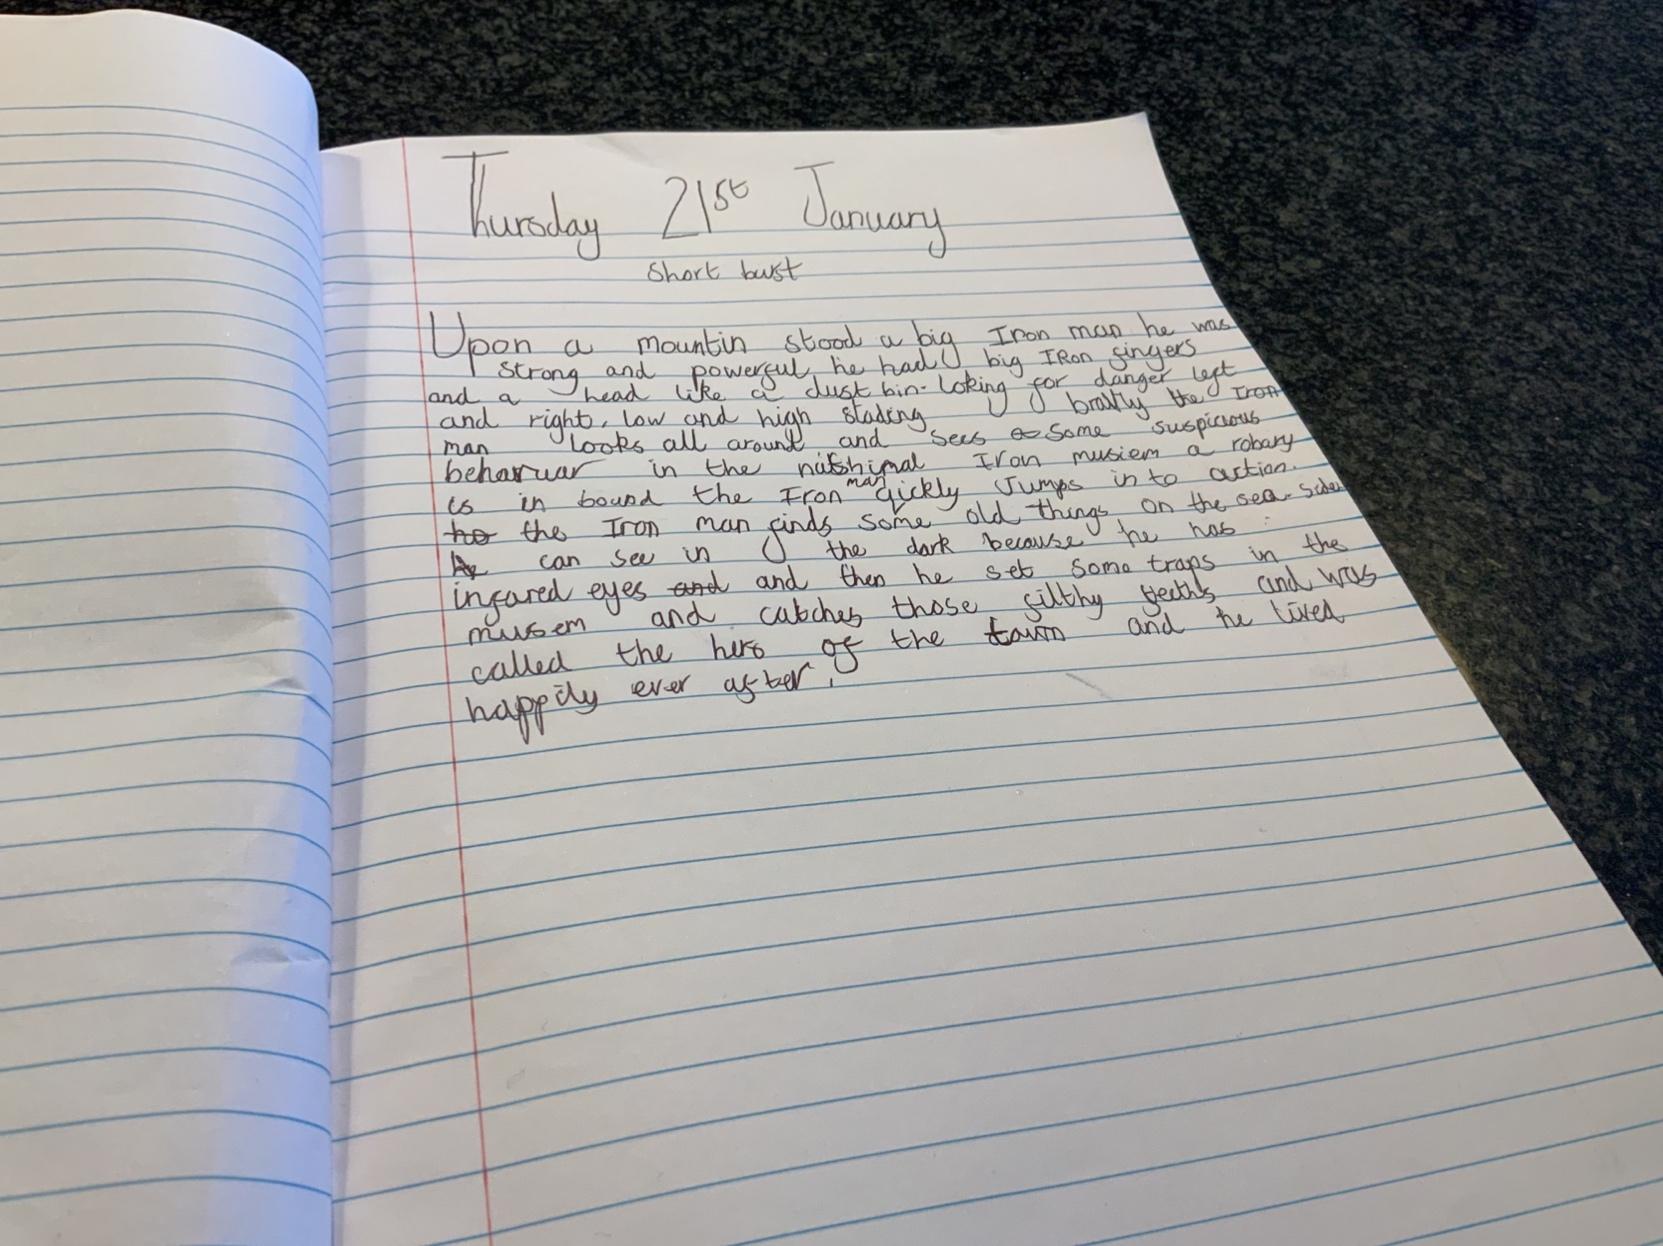 Thursday 21st January
Short bust
Upon a mountin stood a big Iron man he was
strong and powerful, he had big IRon fingers
and a head like a dust bin. Loking for danger left
and right, low and high stading bratly the Iron
man looks all around and sees some suspicious
behaviuar in the natshinal Iron musiem a robary
is in bound the Iron man qickly Jumps in to action.
the Iron man finds some old things on the sea-side
he can see in the dark because he has
infared eyes and then he set some traps in the
musem and catches those filthy and was
called the hero of the town and he lived
happily ever after.